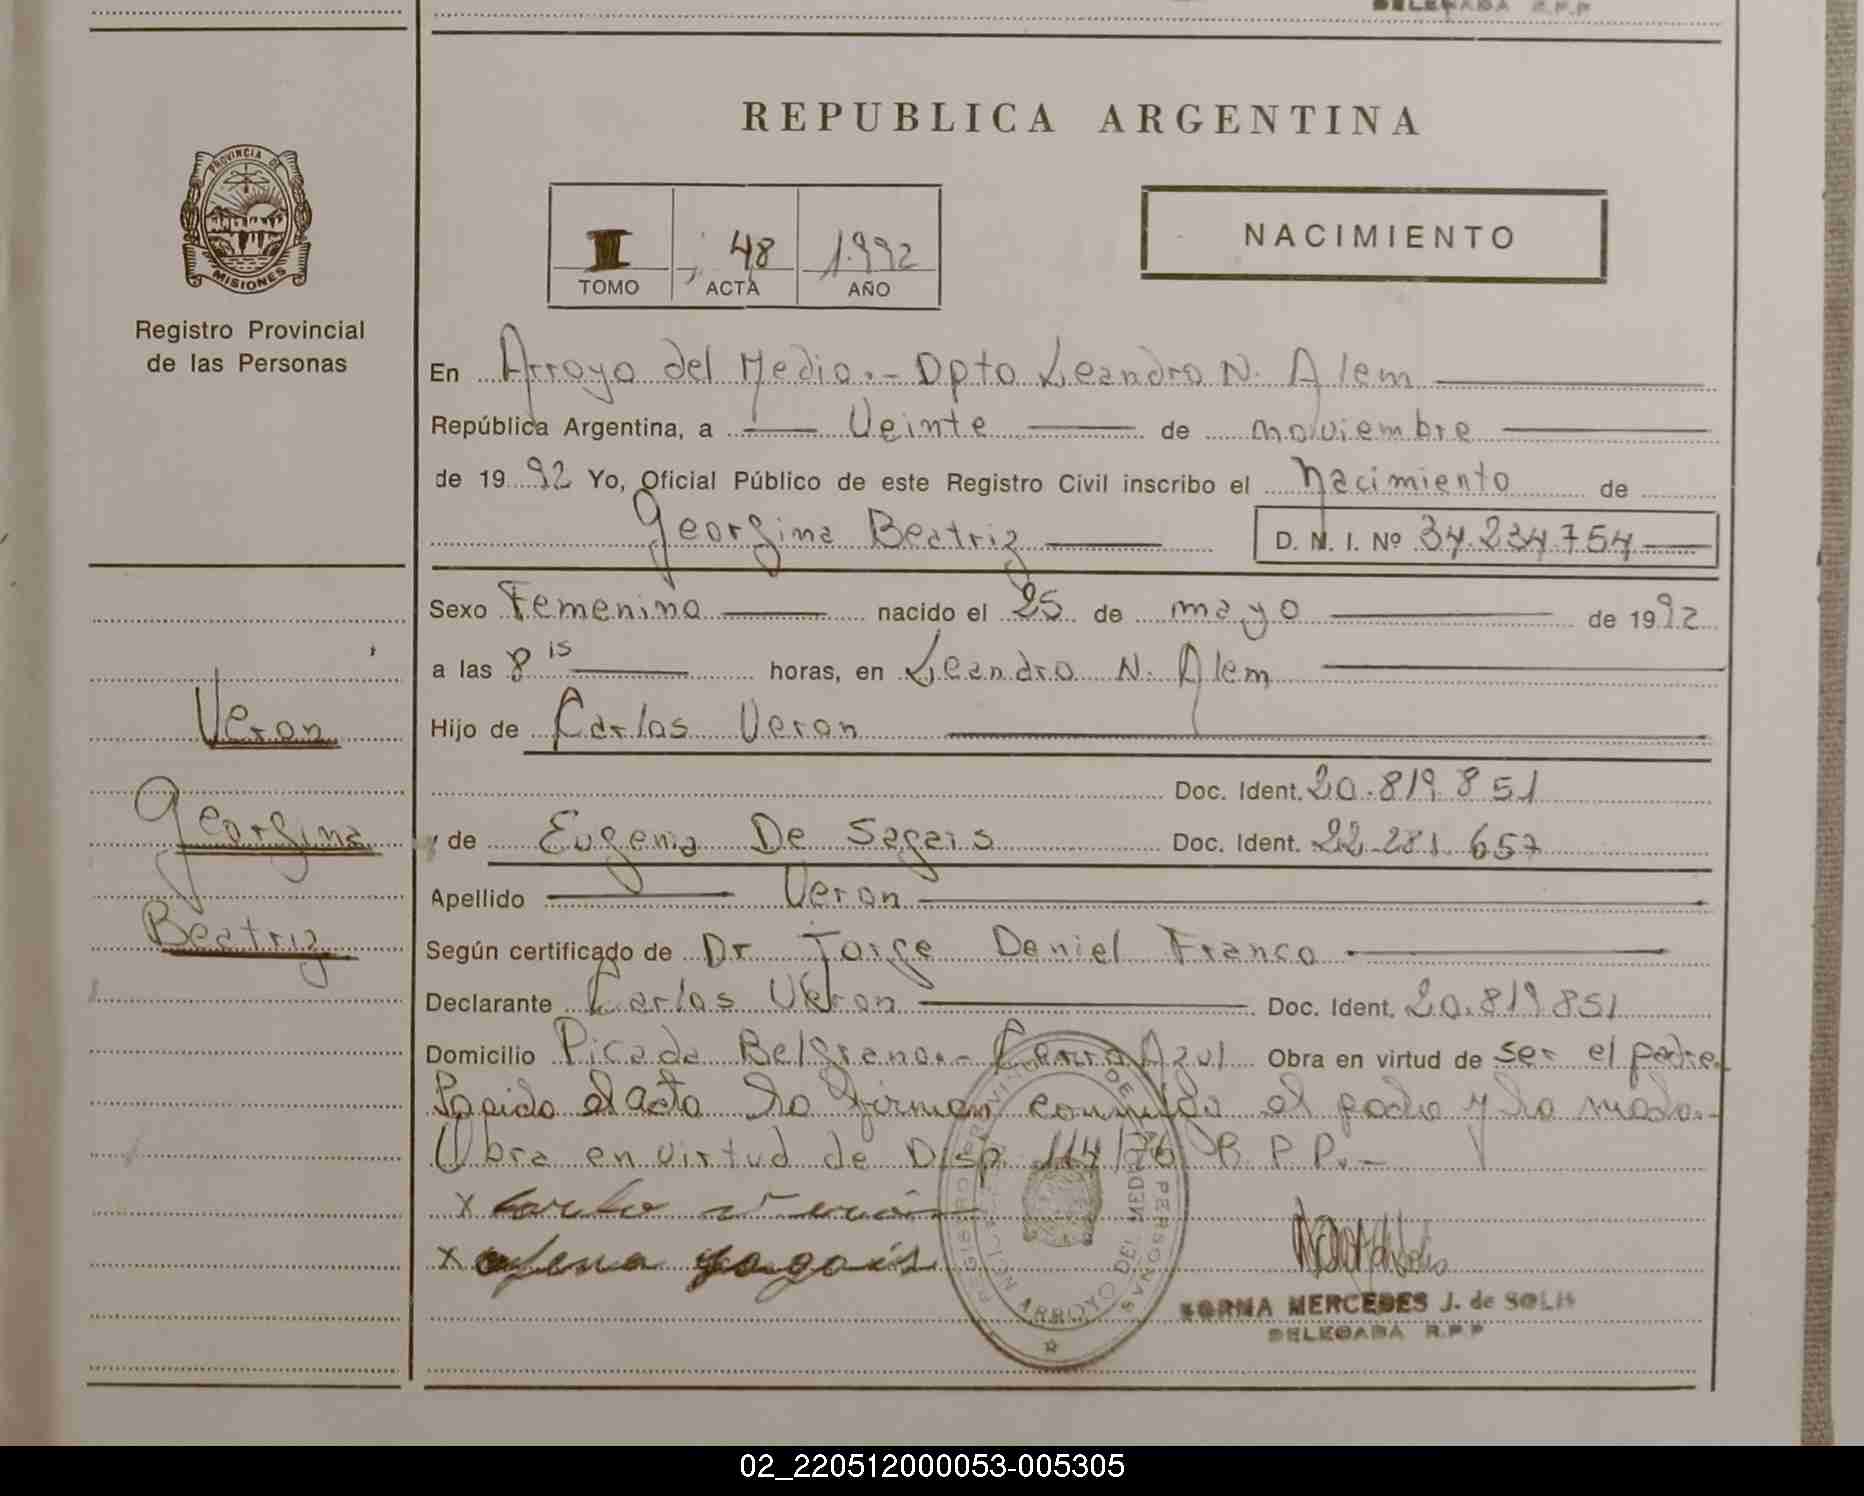 DELEGADA R.P.P
REPUBLICA ARGENTINA
PROVINCIA DE
MISIONES
Registro Provincial
de las Personas
I 48 1992
TOMO ACTA AÑO
NACIMIENTO
En Arroyo del Medio.- Dpto Leandro N. Alem
República Argentina, a Veinte de noviembre
de 1992 Yo, Oficial Público de este Registro Civil inscribo el Nacimiento de
Georgina Beatriz D. N. I. Nº 34.234.754
Sexo Femenino nacido el 25 de mayo de 1992
a las 8 is horas, en Leandro N. Alem
Veron
Hijo de Carlos Veron
Doc. Ident. 20.819.851
Georgina
y de Eugenia De Sagais Doc. Ident. 22.281.657
Apellido Veron
Beatriz
Según certificado de Dr Jorge Daniel Franco
Declarante Carlos Veron Doc. Ident. 20.819.851
Domicilio Picada Belgrano.- Cerro Azul Obra en virtud de ser el padre.
el acta la firman conmigo el padre y la madre.-
Obra en virtud de Disp. 114/76 R.P.P.-
x
x
REGISTRO PROVINCIAL DE LAS PERSONAS
ARROYO DEL MEDIO
NORMA MERCEDES J. de SOLIS
DELEGADA R.P.P
02_220512000053-005305